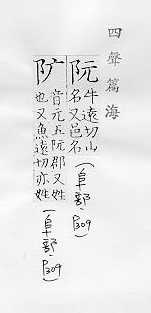 四聲篇海
阮
牛遠切山
名又邑名
(阜部, P309)
音元五阮郡又姓
也又魚遠切亦姓
(阜部, P309)